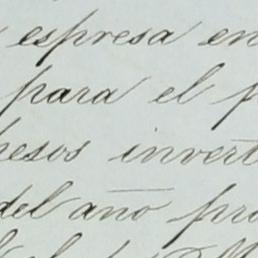 espresa en
para el
pesos invert
del año pro